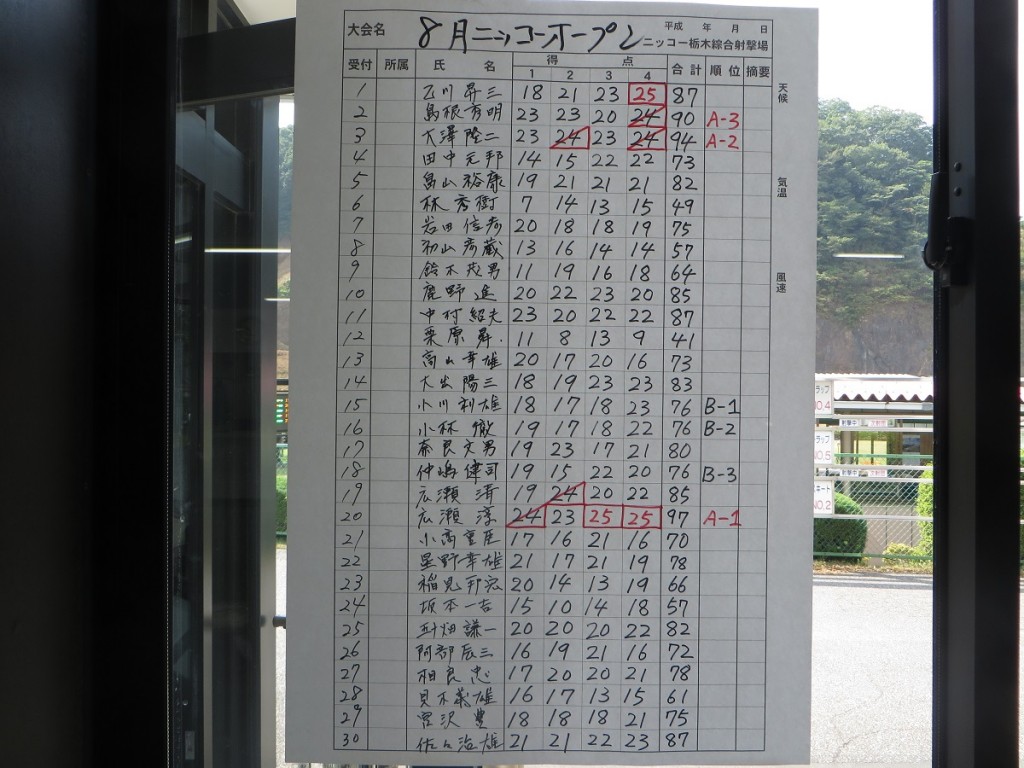 大会名 8月ニッコーオープン 平成 年 月 日
ニッコー栃木綜合射撃場
受付 所属 氏 名 得 点 合計 順位 摘要
1 2 3 4
1 乙川昇三 18 21 23 25 87
2 島根秀明 23 23 20 24 90 A-3
3 大澤隆二 23 24 23 24 94 A-2
4 田中元邦 14 15 22 22 73
5 畠山裕康 19 21 21 21 82
6 林秀樹 7 14 13 15 49
7 岩田信彦 20 18 18 19 75
8 初山彦蔵 13 16 14 14 57
9 鈴木茂男 11 19 16 18 64
10 鹿野進 20 22 23 20 85
11 中村紹夫 23 20 22 22 87
12 栗原昇 11 8 13 9 41
13 高山幸雄 20 17 20 16 73
14 大出陽三 18 19 23 23 83
15 小川利雄 18 17 18 23 76 B-1
16 小林徹 19 17 18 22 76 B-2
17 奈良文男 19 23 17 21 80
18 仲嶋健司 19 15 22 20 76 B-3
19 広瀬清 19 24 20 22 85
20 広瀬淳 24 23 25 25 97 A-1
21 小高 17 16 21 16 70
22 星野幸雄 21 17 21 19 78
23 稲見邦宏 20 14 13 19 66
24 坂本一吉 15 10 14 18 57
25 畑謙一 20 20 20 22 82
26 阿部辰三 16 19 21 16 72
27 相良忠 17 20 20 21 78
28 義雄 16 17 13 15 61
29 宮沢豊 18 18 18 21 75
30 佐々治雄 21 21 22 23 87
天候
気温
風速
ラップ
NO.4
ラップ
NO.5
スキート
NO.2